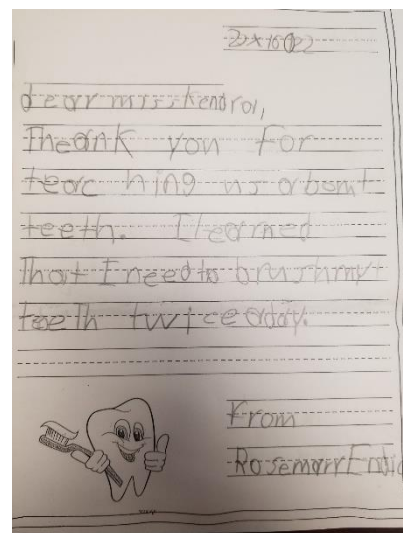 dear miss kendra,
Theank you for
teaching us about
teeth. I learned
That I need to brush my
teeth twice a day.
From
Rosemary